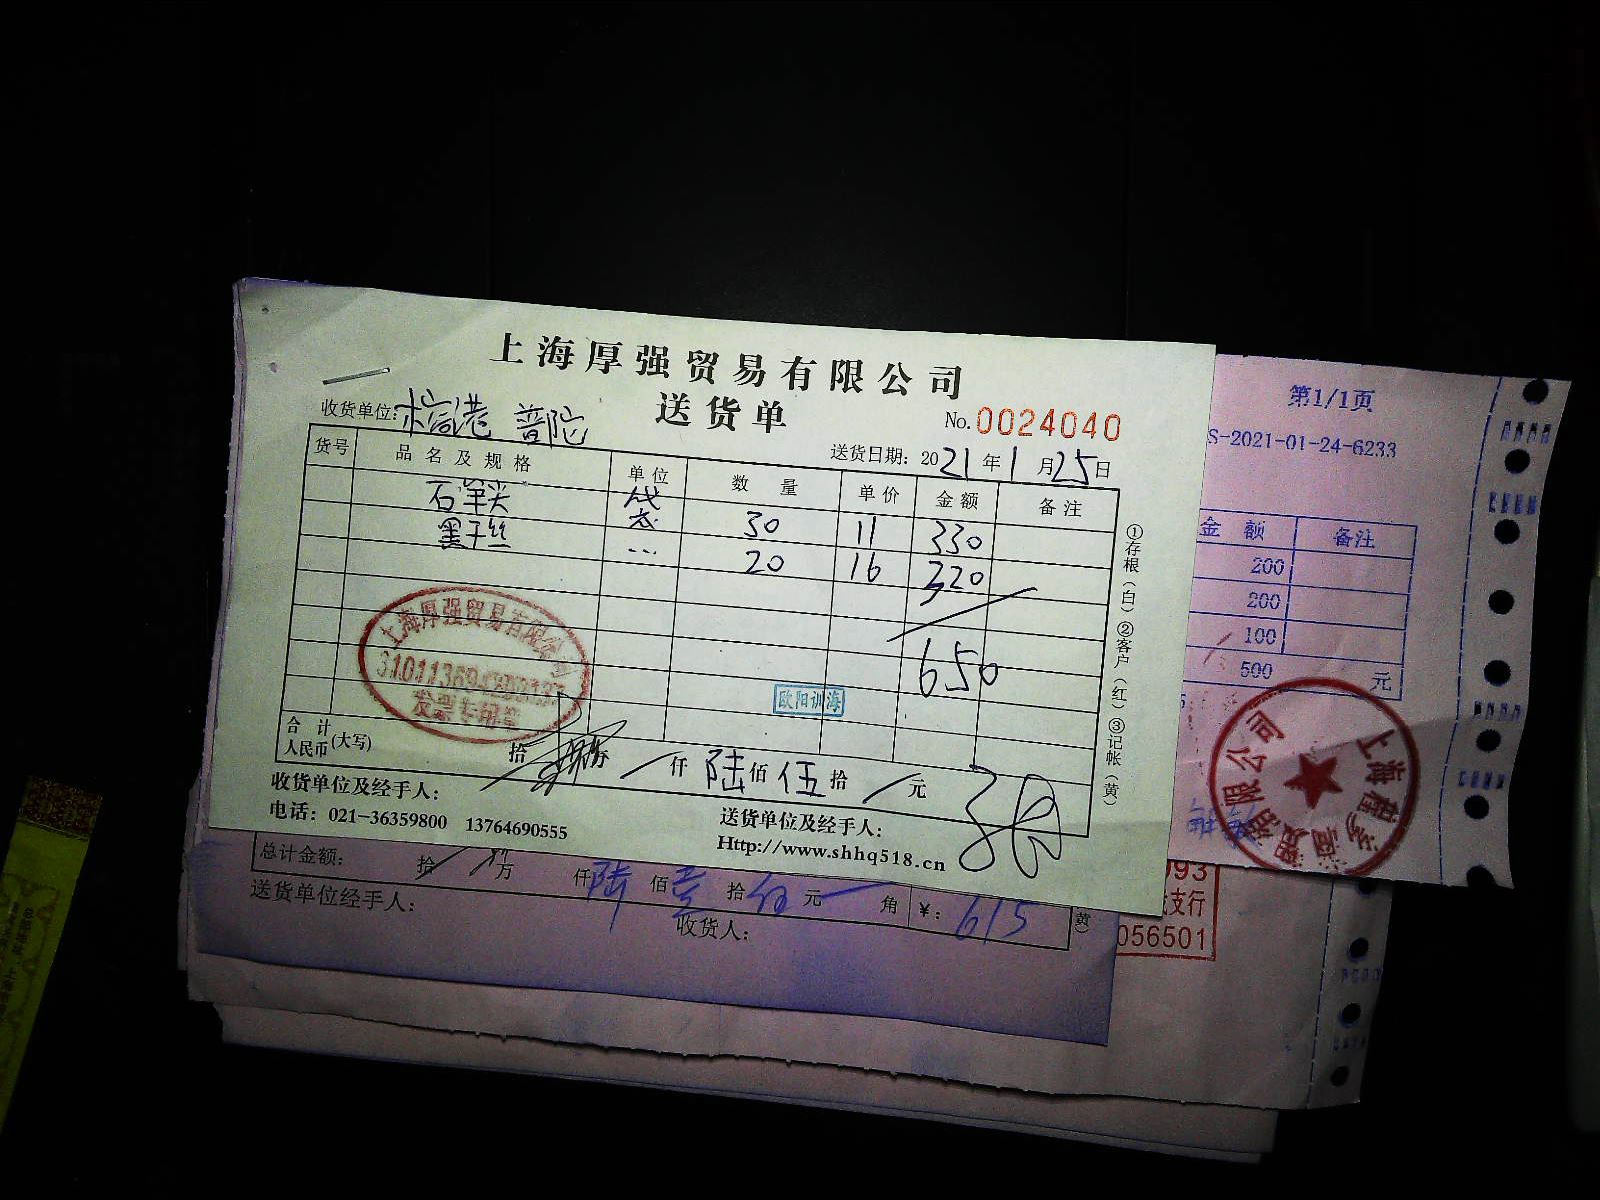 上海厚强贸易有限公司
送货单
No. 0024040
收货单位: 港 普陀
送货日期: 2021年1月25日
货号 品名及规格 单位 数量 单价 金额 备注
石笋尖 袋 30 11 330
黑干丝 ... 20 16 320
650
上海厚强贸易有限公司
发票专用章
欧阳训海
合计
人民币(大写) 拾 仟 陆 佰 伍 拾 元
收货单位及经手人:
送货单位及经手人:
电话: 021-36359800 13764690555
Http://www.shhq518.cn
①存根(白) ②客户(红) ③记帐(黄)
总计金额: 拾 万 仟 陆 佰 壹 拾 伍 元 角 ¥: 615
送货单位经手人:
收货人:
黄)
第1/1页
S-2021-01-24-6233
金额 备注
200
200
100
500 元
093
支行
056501